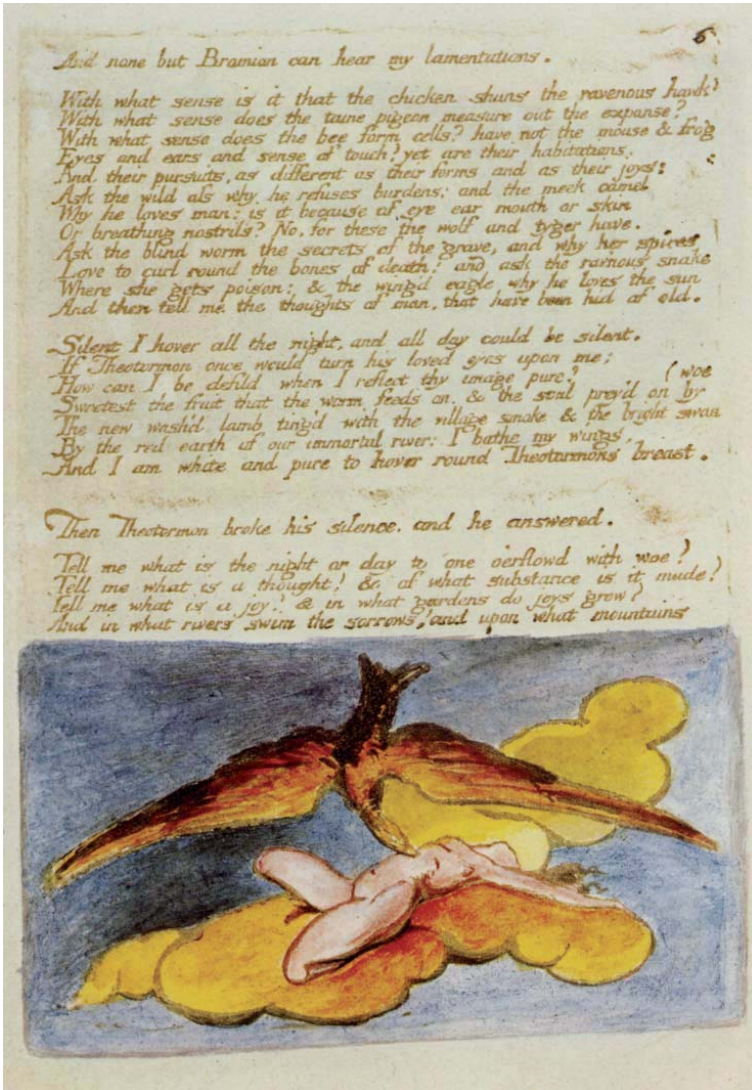 6
And none but Bromion can hear my lamentations.
With what sense is it that the chicken shuns the ravenous hawk?
With what sense does the tame pigeon measure out the expanse?
With what sense does the bee form cells? have not the mouse & frog
Eyes and ears and sense of touch? yet are their habitations.
And their pursuits, as different as their forms and as their joys:
Ask the wild ass why he refuses burdens: and the meek camel
Why he loves man: is it because of eye ear mouth or skin
Or breathing nostrils? No. for these the wolf and tyger have.
Ask the blind worm the secrets of the grave, and why her spires
Love to curl round the bones of death; and ask the rav'nous snake
Where she gets poison: & the wing'd eagle why he loves the sun
And then tell me the thoughts of man, that have been hid of old.
Silent I hover all the night, and all day could be silent.
If Theotormon once would turn his loved eyes upon me;
How can I be defild when I reflect thy image pure?
Sweetest the fruit that the worm feeds on. & the soul prey'd on by (woe
The new wash'd lamb ting'd with the village smoke & the bright swan
By the red earth of our immortal river: I bathe my wings.
And I am white and pure to hover round Theotormons breast.
Then Theotormon broke his silence. and he answered.
Tell me what is the night or day to one o'erflowd with woe?
Tell me what is a thought? & of what substance is it made?
Tell me what is a joy? & in what gardens do joys grow?
And in what rivers swim the sorrows? and upon what mountains